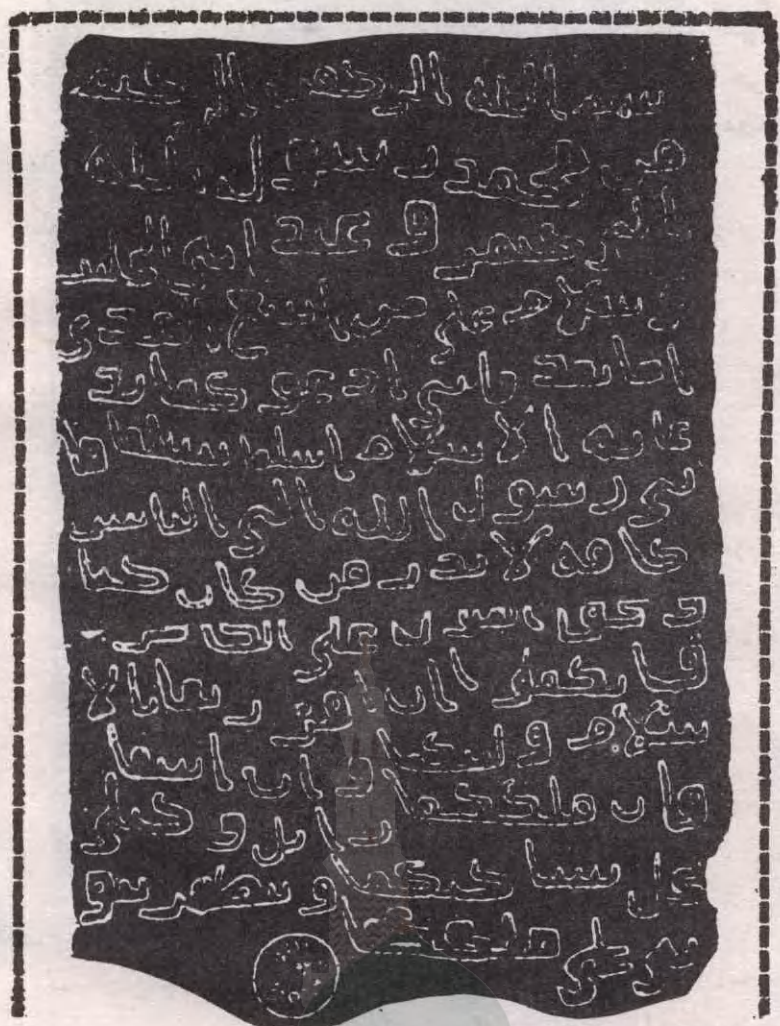 بسم الله الرحمن الرحيم
من محمد رسول الله
الى جيفر و عبد ابني الجلند
ى سلام على من اتبع الهدى
اما بعد فاني ادعو كما بد
عايه الاسلام اسلما تسلما فا
ني رسول الله الى الناس
كافه لانذر من كان حيا
و يحق القول على الكافرين
فا نكما ان اقررتما بالا
سلام وليتكما و ان ابيتما
فان ملككما زايل و خيلي
تحل بسا حتكما و تظهر نبو
تي على ملككما